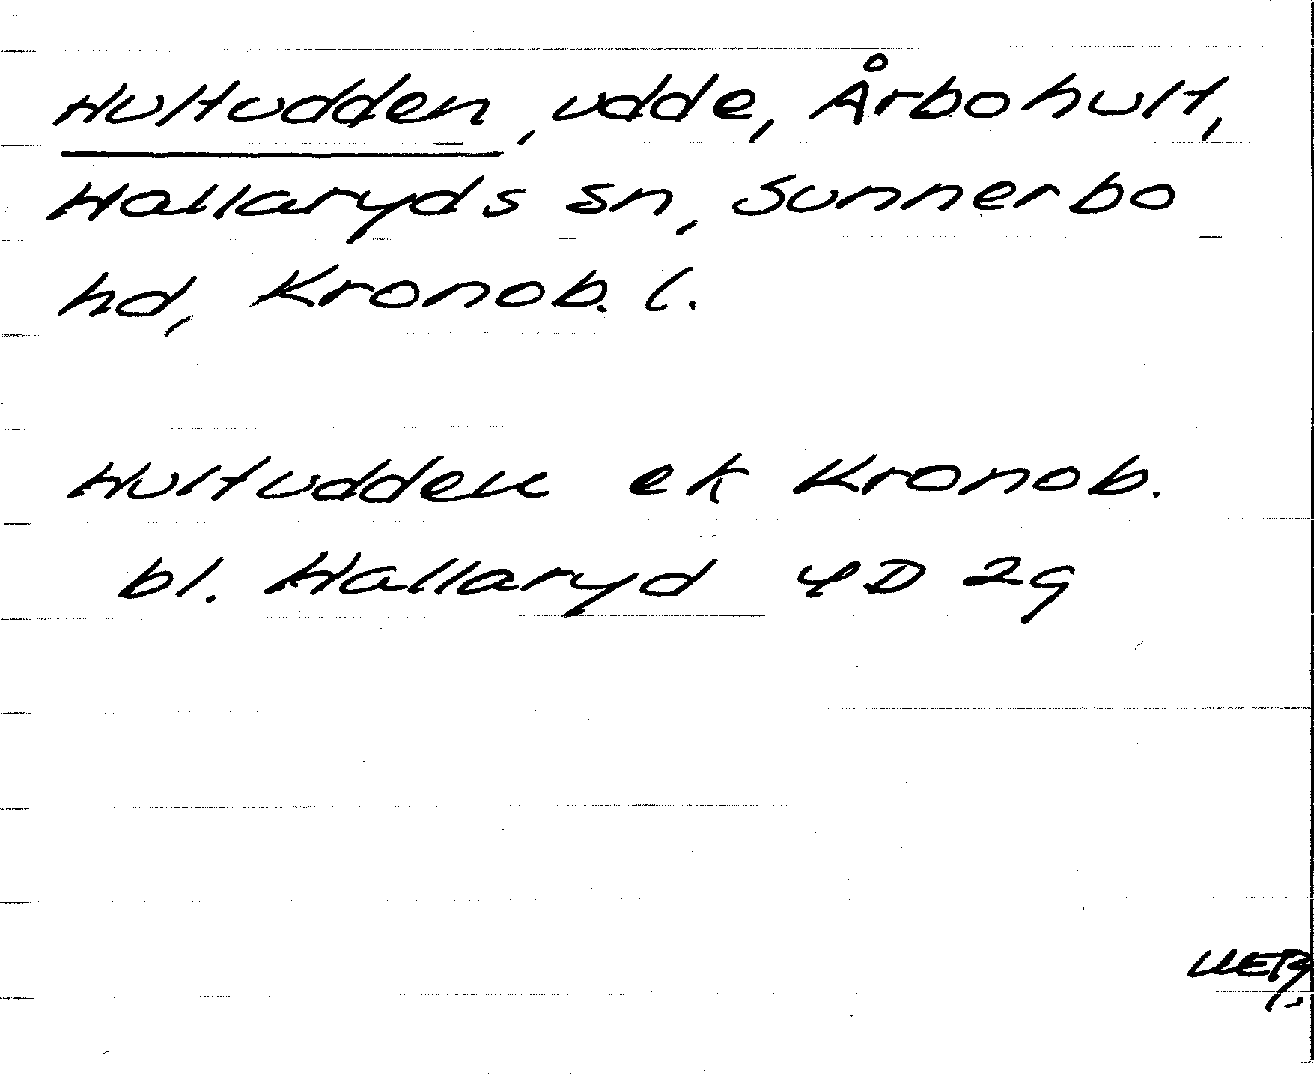 Hultudden, udde, Årbohult,
Hallaryds sn, Sunnerbo
hd, Kronob. l.
Hultudden ek Kronob.
bl. Hallaryd 4D 2g